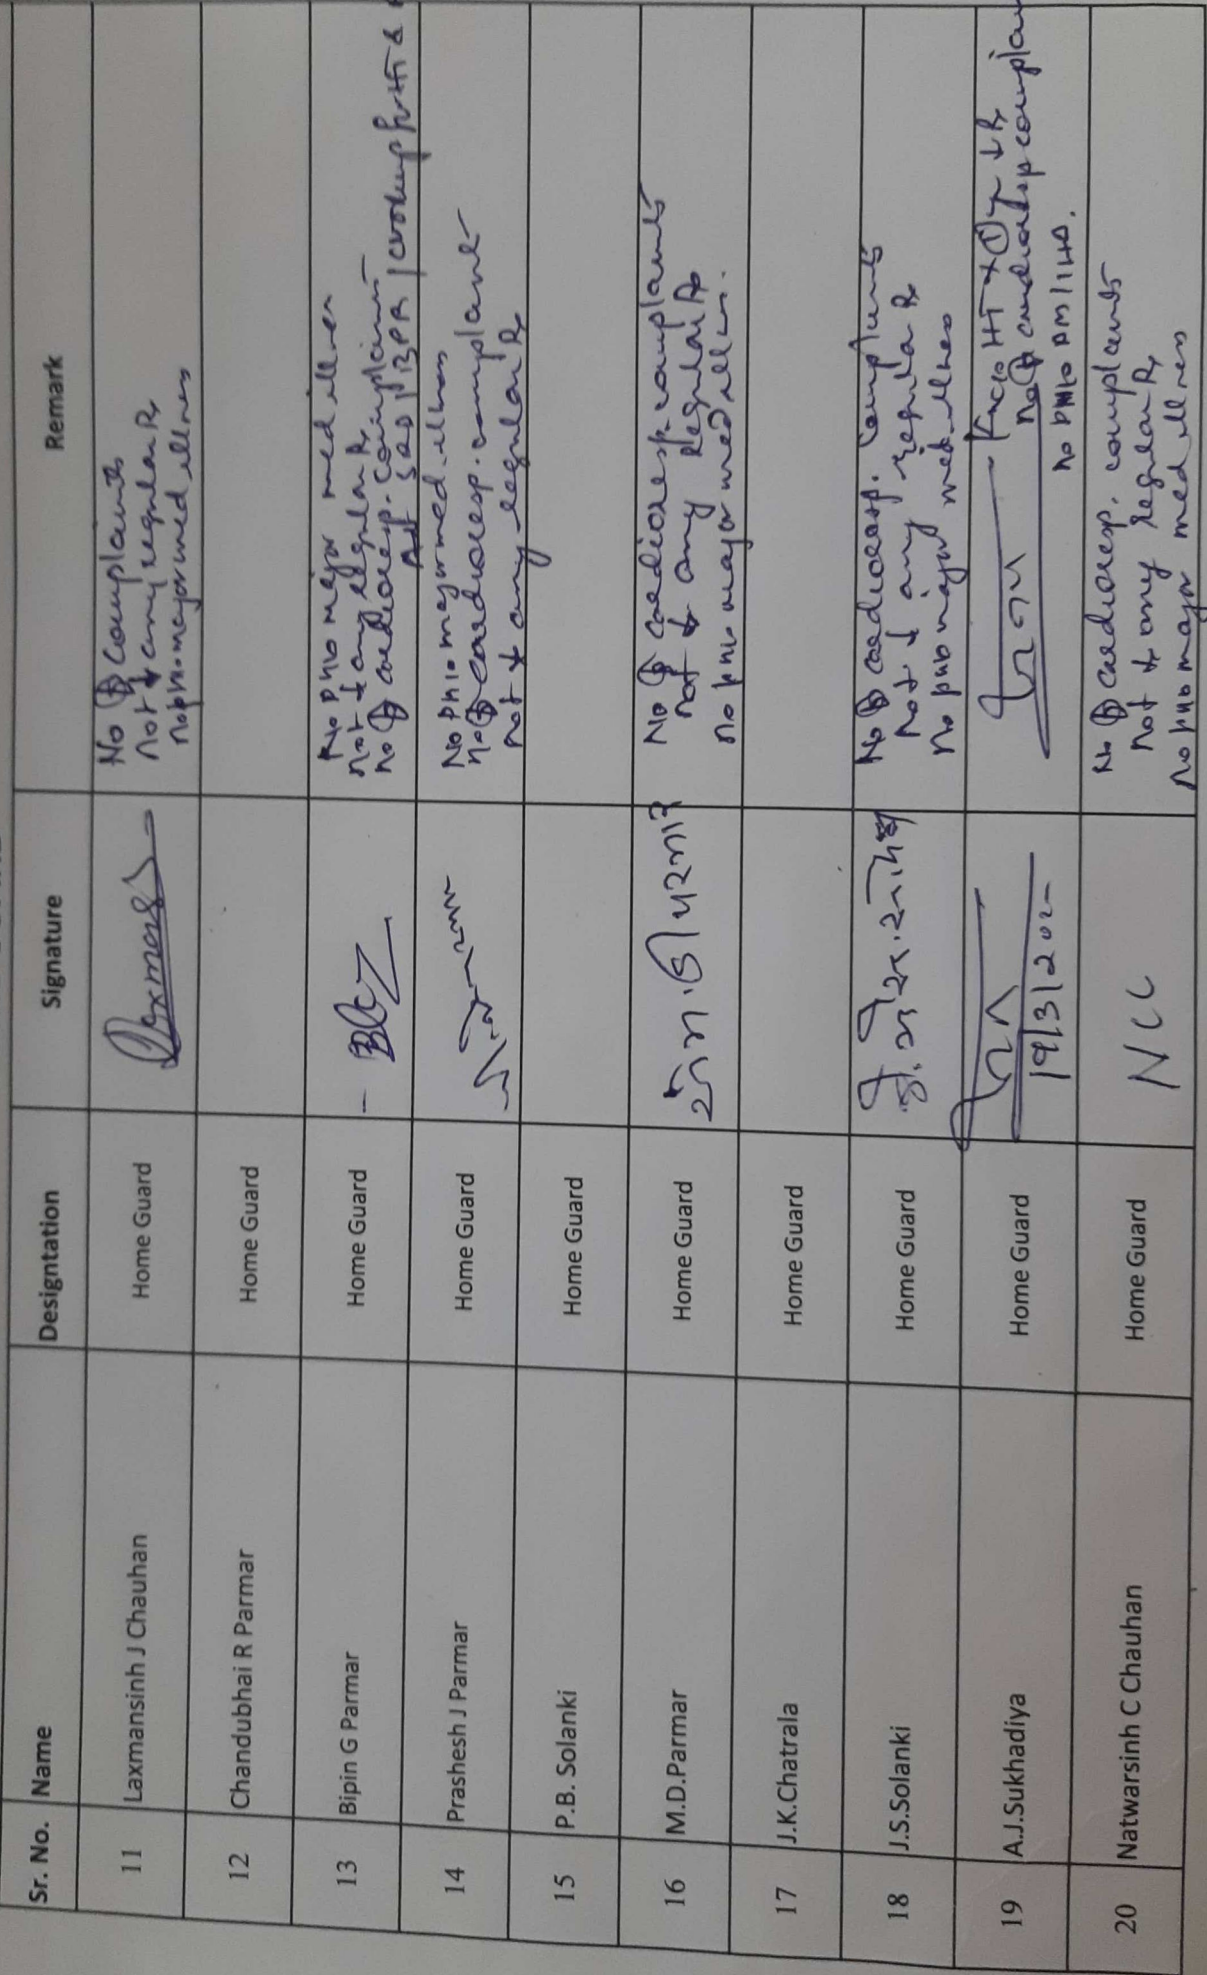 Sr. No. Name Designtation Signature Remark
11 Laxmansinh J Chauhan Home Guard Laxmansg No complaints
not any regular Rx
no p/h/o major med illness
12 Chandubhai R Parmar Home Guard
13 Bipin G Parmar Home Guard No p/h/o major med illness
not any regular Rx
no cardioresp. complaint
14 Prashesh J Parmar Home Guard No p/h/o major med. illness
no cardioresp. complaint
not any regular Rx
15 P.B. Solanki Home Guard
16 M.D.Parmar Home Guard No cardioresp complaints
not any regular Rx
no p/h/o major med illness.
17 J.K.Chatrala Home Guard
18 J.S.Solanki Home Guard No cardioresp. complaints
not any regular Rx
no p/h/o major med. illness
19 A.J.Sukhadiya Home Guard K/c/o HT x 1 yr Rx
no cardioresp complain
no p/h/o DM/IHD.
20 Natwarsinh C Chauhan Home Guard NCC No cardioresp. complaints
not any regular Rx
no p/h/o major med illness